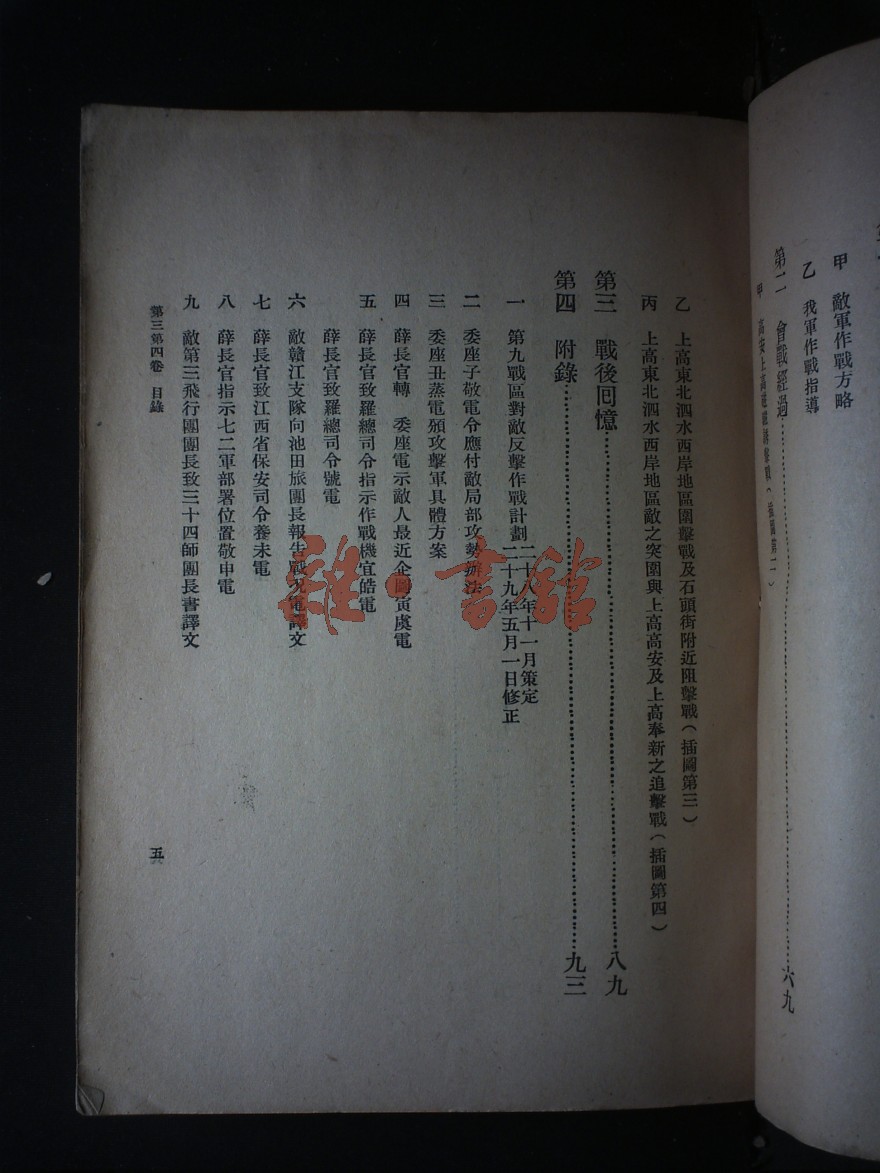 甲 敵軍作戰方略
乙 我軍作戰指導
第二 會戰經過……六九
乙 上高東北泗水西岸地區圍擊戰及石頭街附近阻擊戰(插圖第三)
丙 上高東北泗水西岸地區敵之突圍與上高高安及上高奉新之追擊戰(插圖第四)
第三 戰後回憶……八九
第四 附錄……九三
一 第九戰區對敵反擊作戰計劃 二十八年十一月策定 二十九年五月一日修正
二 委座子敬電令應付敵局部攻勢辦法
三 委座丑蒸電頒攻擊軍具體方案
四 薛長官轉 委座電示敵人最近企圖寅虞電
五 薛長官致羅總司令指示作戰機宜皓電
薛長官致羅總司令號電
六 敵贛江支隊向池田旅團長報告戰況電譯文
七 薛長官致江西省保安司令養未電
八 薛長官指示七二軍部署位置敬申電
九 敵第三飛行團團長致三十四師團長書譯文
第三第四卷 目錄
五
雜·書館